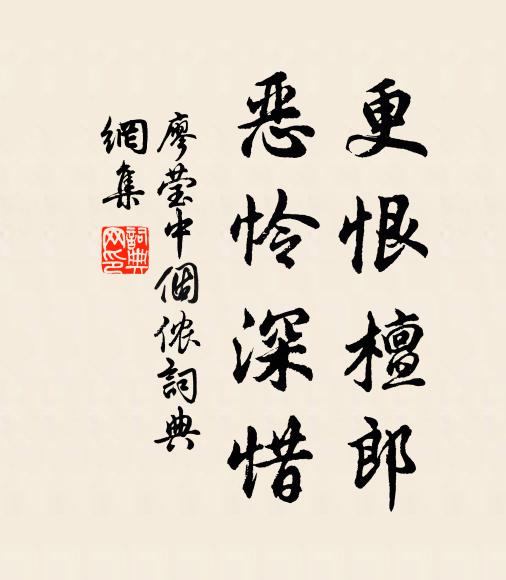 更恨檀郎
惡怜深惜
廖莹中個侬詞典
網集
詞典
网印